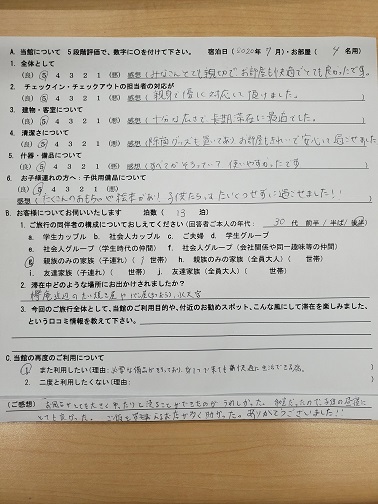 A. 当館について 5段階評価で、数字に〇を付けて下さい。 宿泊日(2020年9月)・お部屋(4名用)
1. 全体として
(良) 5 4 3 2 1 (悪) 感想(みなさんとても親切でお部屋も快適でとても良かったです。
2. チェックイン・チェックアウトの担当者の対応が
(良) 5 4 3 2 1 (悪) 感想(親身で優しく対応して頂けました。
3. 建物・客室について
(良) 5 4 3 2 1 (悪) 感想(十分な広さで、長期滞在に最適でした。
4. 清潔さについて
(良) 5 4 3 2 1 (悪) 感想(除菌グッズも置いてあり お部屋もきれいで安心して過ごせました
5. 什器・備品について
(良) 5 4 3 2 1 (悪) 感想(すべてがそろっていて使いやすかったです )
6. お子様連れの方へ:子供用備品について
(良) 5 4 3 2 1 (悪)
感想(たくさんのおもちゃや絵本があり子供たちはたいくつせずに過ごせました!!
B. お客様についてお伺いいたします 泊数( 13 泊)
1. ご旅行の同伴者の構成についておしえてください(回答者ご本人の年代: 30代 前半/半ば/後半)
a. 学生カップル b. 社会人カップル c. ご夫婦 d. 学生グループ
e. 社会人グループ(学生時代の仲間) f. 社会人グループ(会社関係や同一趣味等の仲間)
g 親族のみの家族(子連れ)( 1 世帯) h. 親族のみの家族(全員大人)( 世帯)
i. 友達家族(子連れ)( 世帯) j. 友達家族(全員大人)( 世帯)
2. 滞在中どのような場所にお出かけされましたか?
3. 今回のご旅行全体として、当館のご利用目的や、付近のお勧めスポット、こんな風にして滞在を楽しみました、
という口コミ情報を教えて下さい。
C. 当館の再度のご利用について
1 また利用したい(理由:必要な備品がそろっており、
2 二度と利用したくない(理由: )
(ご感想) お風呂がとても大きく
とても良かった。 助かった。ありがとうございました!!